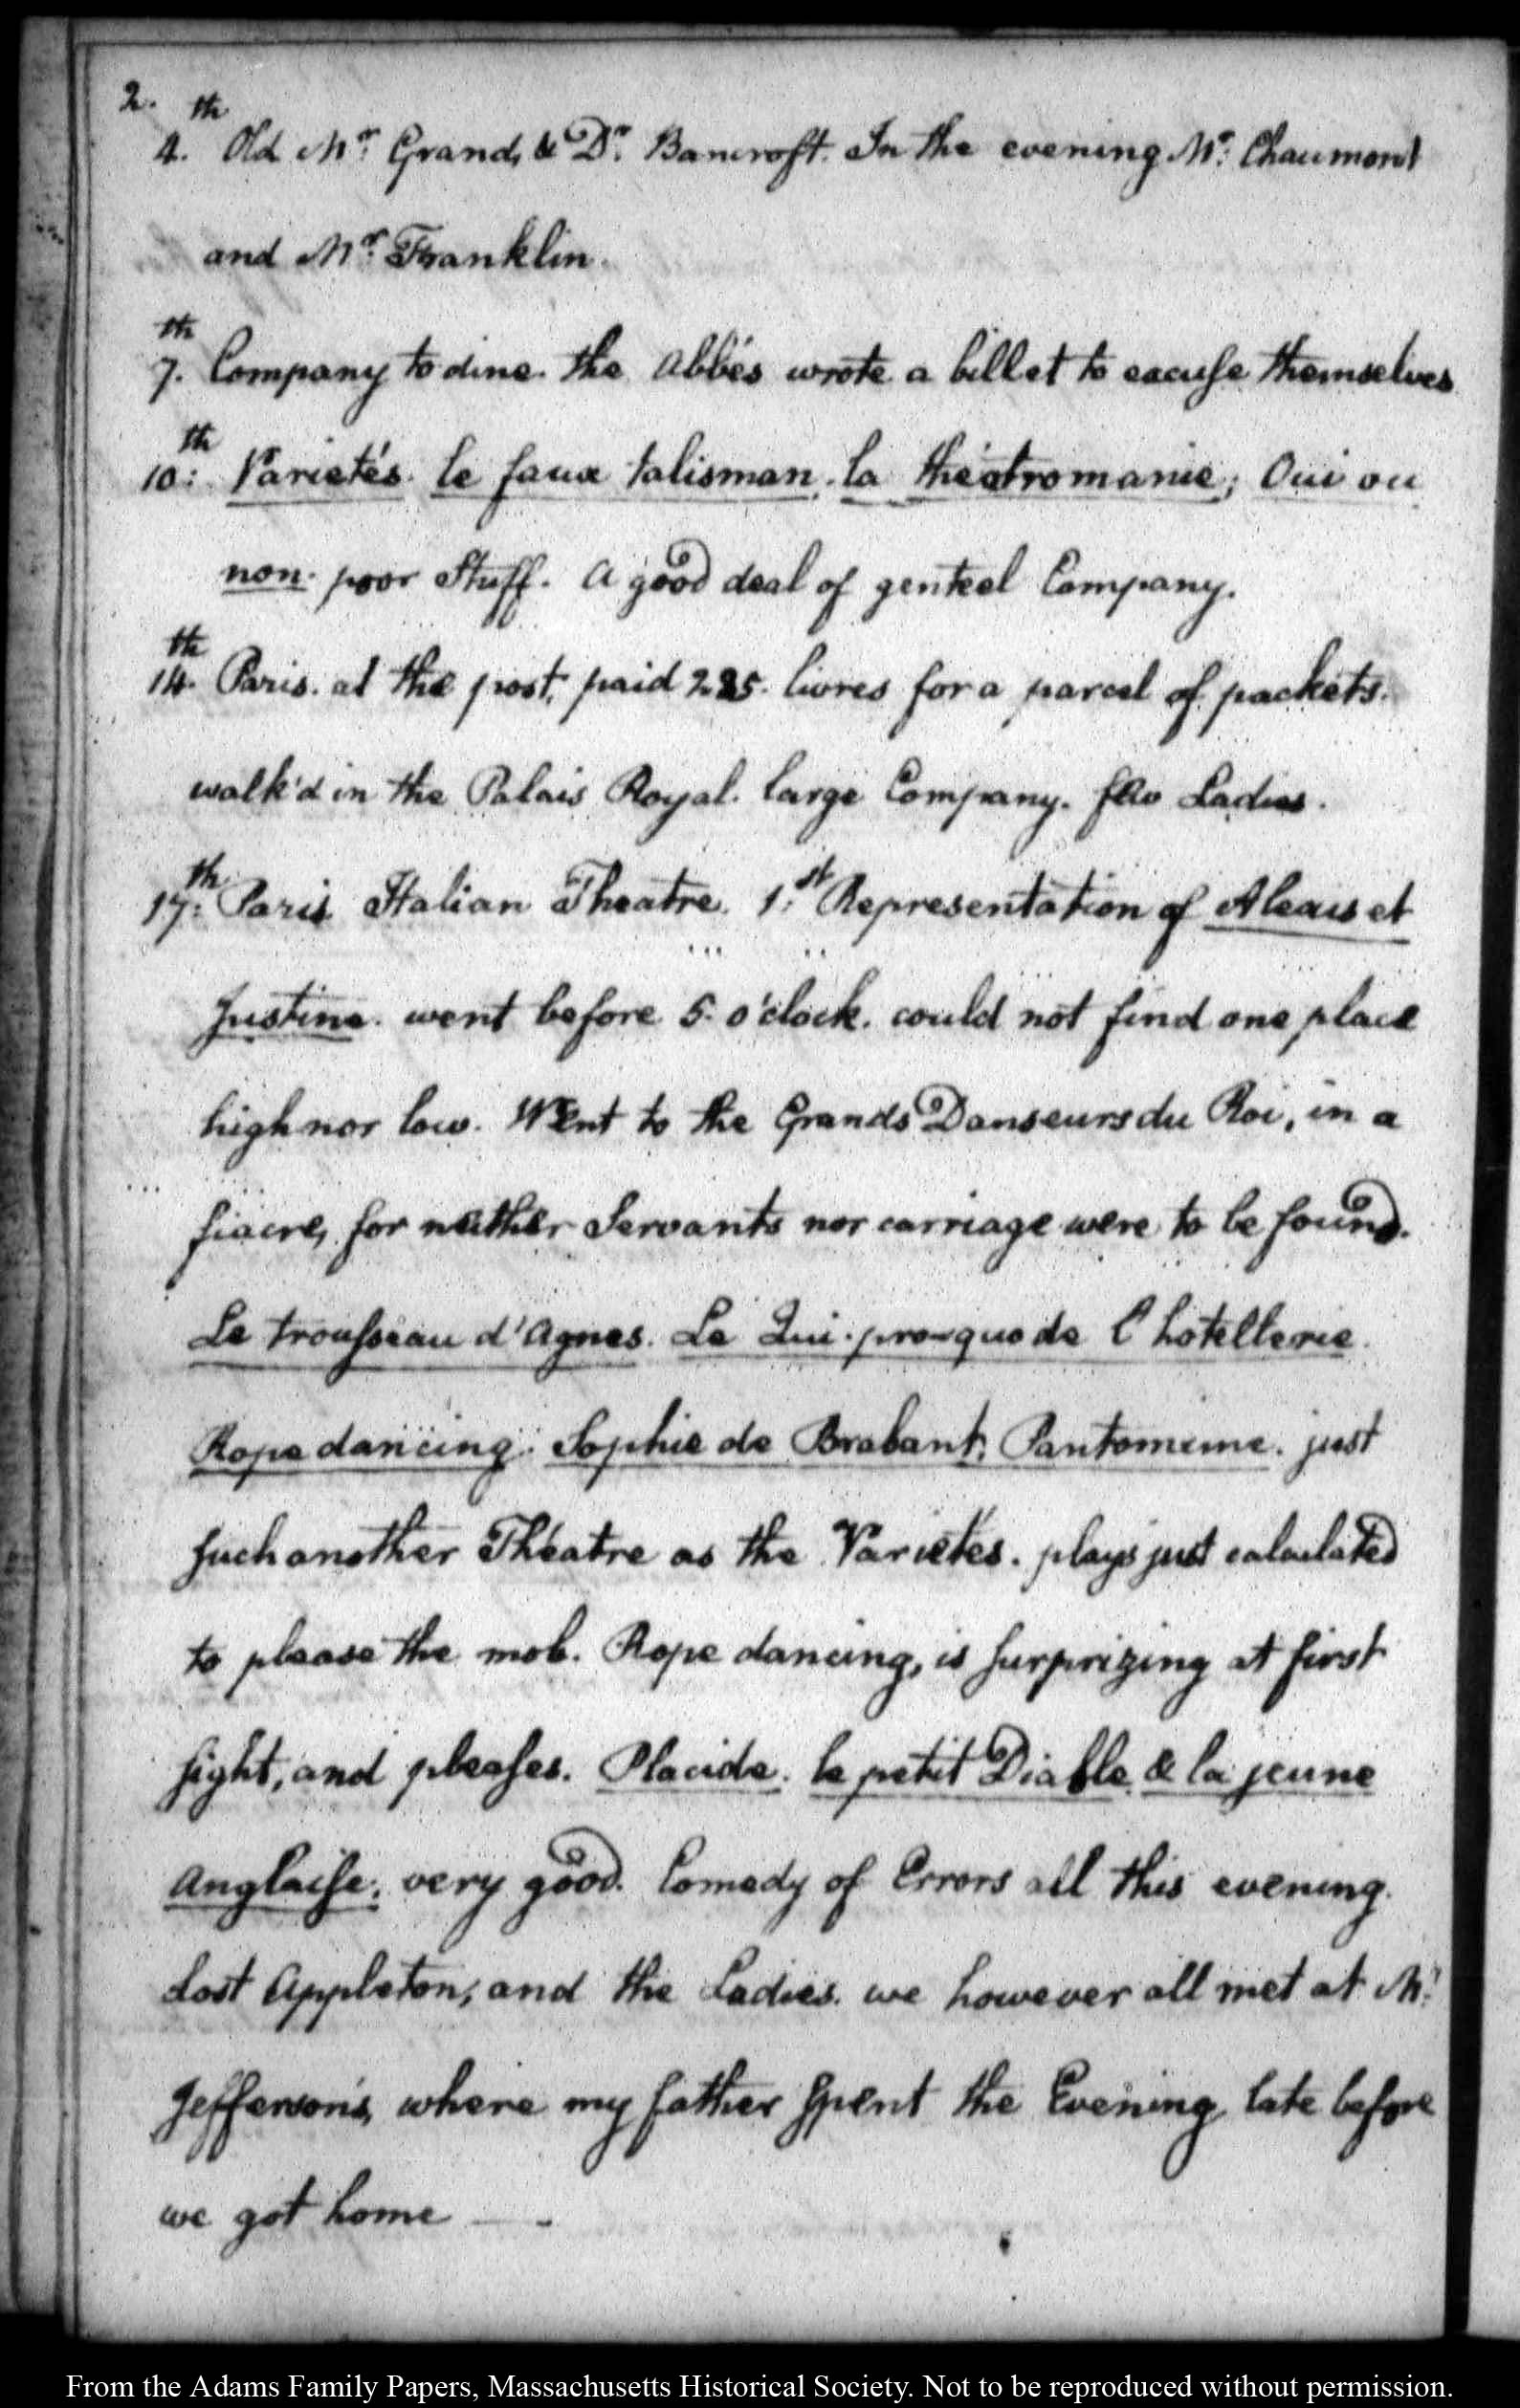 2.
4.th Old Mr. Grand, & Dr. Bancroft. In the evening Mr. Chaumont
and Mr. Franklin.
7.th Company to dine. the Abbés wrote a billet to excuse themselves
10:th Varietés. le faux talisman, la théatromanie; Oui ou
non. poor Stuff. A good deal of genteel Company.
14.th Paris. at the post, paid 225. livres for a parcel of packets.
walk'd in the Palais Royal. large Company. few Ladies.
17:th Paris Italian Theatre. 1:st Representation of Alexis et
Justine. went before 5. o'clock. could not find one place
high nor low. Went to the Grands Danseurs du Roi, in a
fiacre, for neither Servants nor carriage were to be found.
Le trousseau d'Agnes. Le Qui-pro-quo de l'hotellerie
Rope dancing. Sophie de Brabant, Pantomime. just
such another Théatre as the Varietés. plays just calculated
to please the mob. Rope dancing, is surprizing at first
sight, and pleases. Placide. le petit Diable & la jeune
Anglaise, very good. Comedy of Errors all this evening.
Lost Appleton, and the Ladies. we however all met at Mr.
Jefferson's, where my father spent the Evening, late before
we got home —
From the Adams Family Papers, Massachusetts Historical Society. Not to be reproduced without permission.